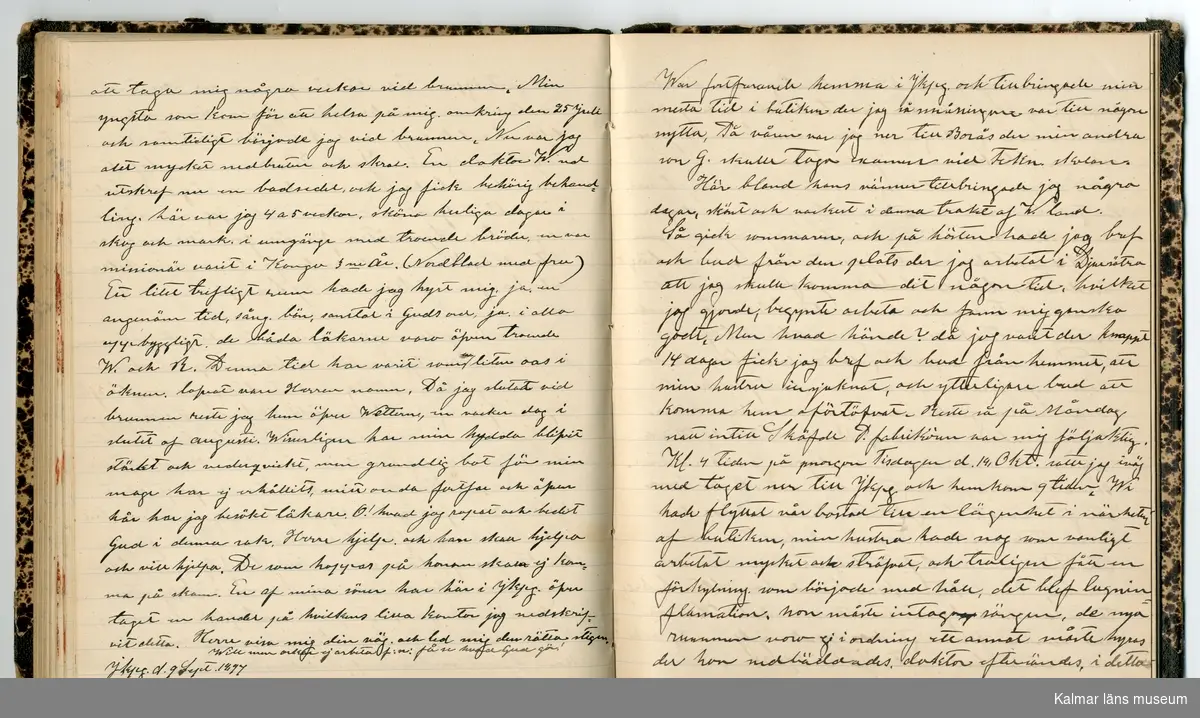 att taga mig några veckor vid brunnen. Min
yngsta son kom för att helsa på mig omkring den 25 Juli
och samtidigt började jag vid brunnen. Nu var jag
alt mycket nedbruten och skral. En doktor W.
utskref nu en badsedel, och jag fick behörig behand-
ling. här var jag 4 a 5 veckor, sköna herliga dagar i
skog och mark, i umgänge med troende bröder, en var
missionär varit i Kongo 3 ne År. (Nordblad med fru)
Ett litet trefligt rum hade jag hyrt mig, ja, en
angenäm tid, sång, bön, samtal i Guds ord, ja, i allo
uppbyggligt, de båda läkarne voro äfven troende
W. och R. Denna tid har varit som liten oas i
öknen. lofvat vare Herrens namn. Då jag slutat vid
brunnen reste jag hem öfver Wettern, en vacker dag i
slutet af augusti. Wisserligen har min hydda blifvit
stärkt och vederqvickt, men grundlig bot för min
mage har ej erhållits, mitt onda fortfar och äfven
här har jag besökt läkare. O! hvad jag ropat och bedet
Gud i denna sak. Herre hjelp, och han skall hjelpa
och vill hjelpa. De som hoppas på honom skola ej kom-
ma på skam. En af mina söner har här i Jkpg. öfver
taget en handel på hvilkens lilla kontor jag nedskrif-
vit detta. Herre visa mig din väg, och led mig den rätta stigen.
Jkpg. d. 9 Sept. 1897
War fortfarande hemma i Jkpg och tillbringade min
mesta tid i butiken der jag så småningom var till någon
nytta. På våren var jag ner till Borås der min andra
son G. skulle taga examen vid Tekn. skolan.
Här bland hans vänner tillbringade jag några
dagar, skönt och vackert i denna trakt af W. land.
Så gick sommaren, och på hösten hade jag bref
och bud från den plats der jag arbetat i Djursätra
att jag skulle komma dit någon tid, hvilket
jag gjorde, begynte arbeta och fann mig ganska
godt. Men hvad hände? då jag varit der knappt
14 dagar fick jag bref och bud från hemmet, att
min hustru insjuknat, och ytterligare bud att
komma hem oförtöfvat. Reste så på Måndag
natt intill Sköfde P. fabrikören var mig följaktig.
Kl. 4 tiden på morgon Tisdagen d. 14 Okt. satte jag iväg
med taget ner till Jkpg och hemkom 9 tiden. Wi
hade flyttat vår bostad till en lägenhet i närheten
af butiken, min hustru hade nog som vanligt
arbetat mycket och sträfvat, och troligen fått en
förkylning som började med håll, det blef lungin-
flamation. hon måste intaga sängen, de nya
rummen voro ej i ordning ett annat måste hyras
der hon nedbäddades, doktor eftersändes, i detta
Kalmar läns museum